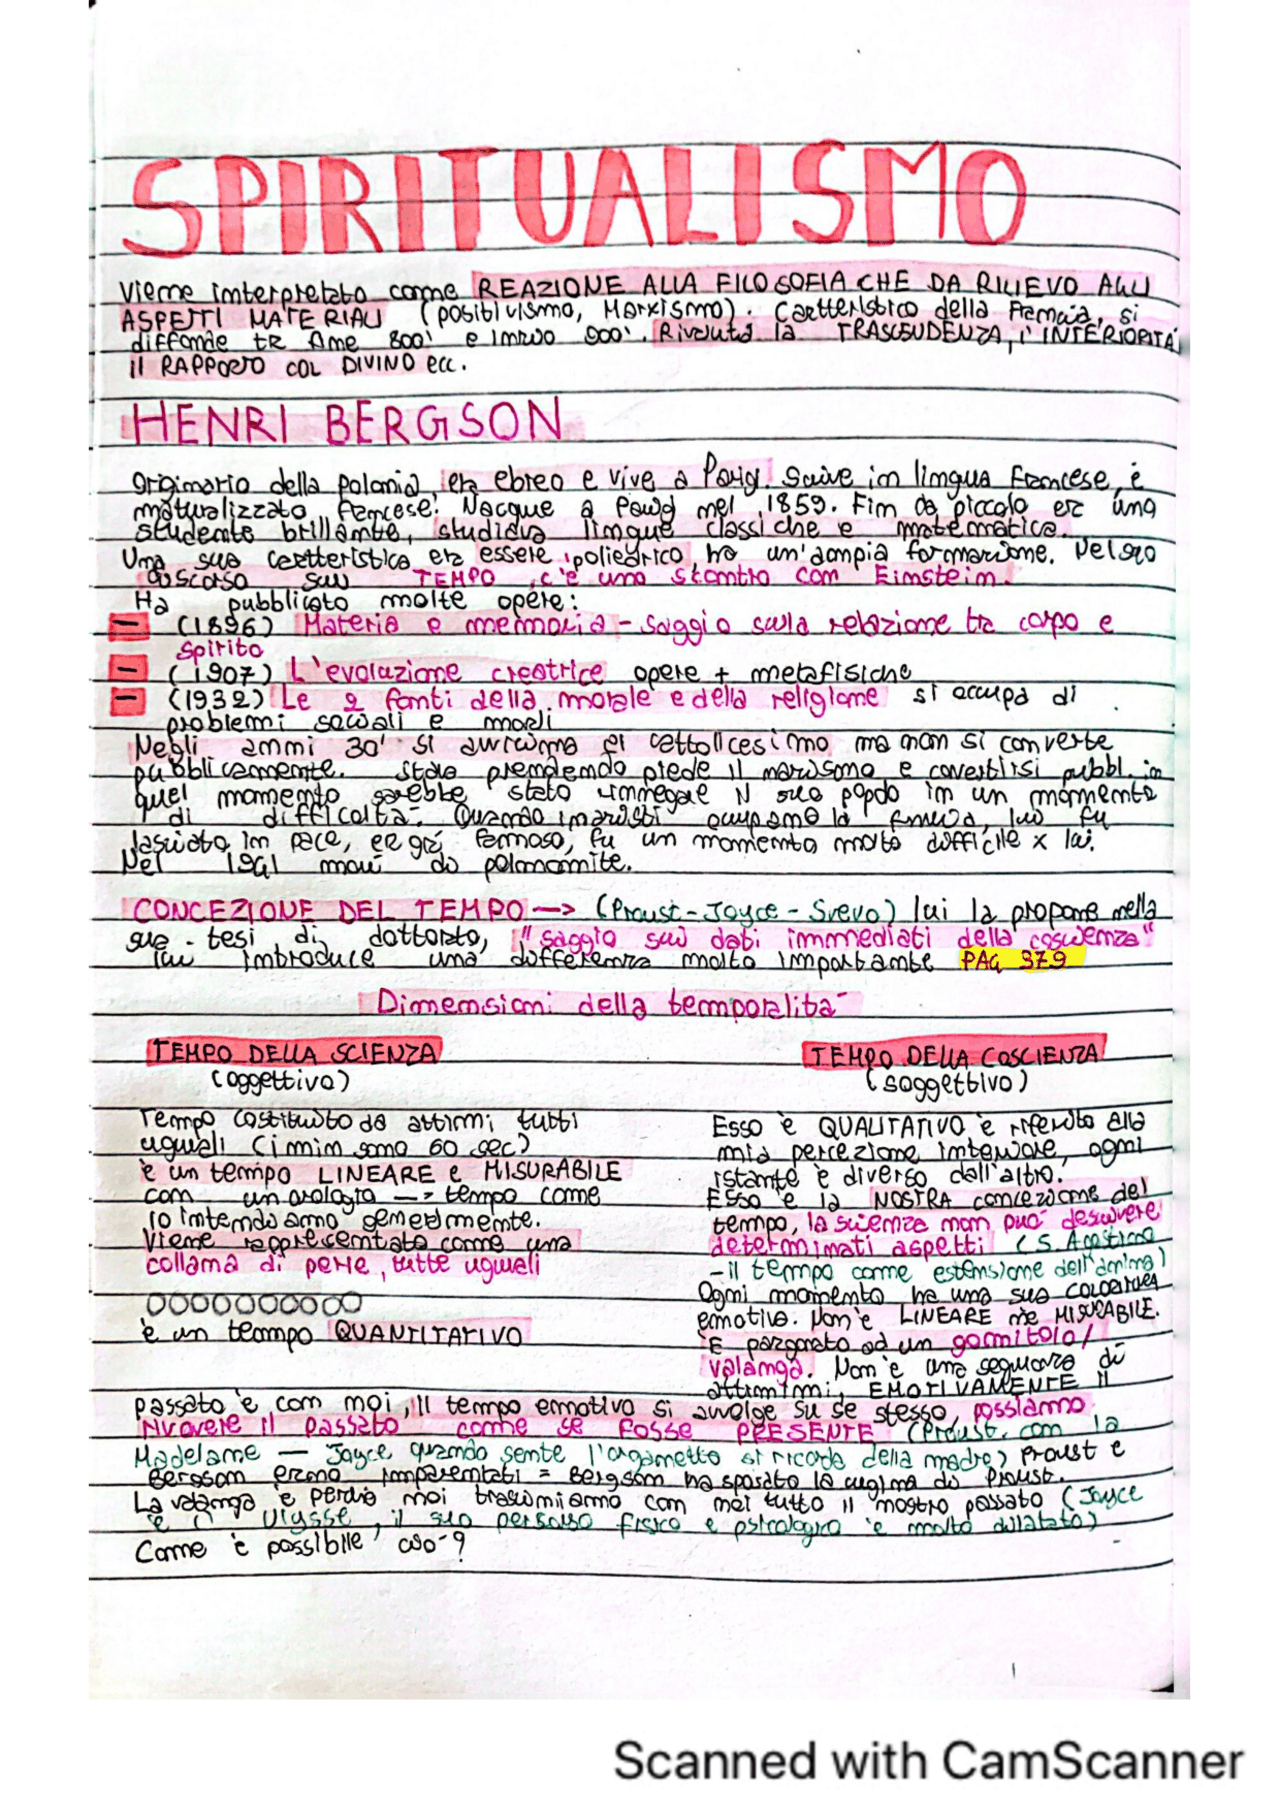 SPIRITUALISMO
Viene interpretato come REAZIONE ALLA FILOSOFIA CHE DA RILIEVO AGLI
ASPETTI MATERIALI (positivismo, Marxismo). Caratteristico della Francia, si
diffonde tra fine 800' e inizio 900'. Rivaluta la TRASCENDENZA, l'INTERIORITÀ
il RAPPORTO COL DIVINO ecc.
HENRI BERGSON
Originario della polonia, era ebreo e vive a Parigi. Scrive in lingua francese, è
naturalizzato francese. Nacque a Parigi nel 1859. Fin da piccolo era uno
studente brillante, studiava lingue classiche e matematica.
Una sua caratteristica era essere poliedrico, ha un'ampia formazione. Nel suo
discorso sul TEMPO c'è uno scontro con Einstein.
Ha pubblicato molte opere:
- (1896) Materia e memoria - saggio sulla relazione tra corpo e
spirito
- (1907) L'evoluzione creatrice opere + metafisiche
- (1932) Le 2 fonti della morale e della religione si occupa di
problemi sociali e morali
Negli anni 30' si avvicina al cattolicesimo ma non si converte
pubblicamente. Stava prendendo piede il e convertirsi pubbl. in
quel momento sarebbe stato rinnegare il suo popolo in un momento
di difficoltà. Quando i occupano la francia, lui fu
lasciato in pace, era già famoso, fu un momento molto difficile x lui.
Nel 1941 morì di polmonite.
CONCEZIONE DEL TEMPO --> (Proust - Joyce - Svevo) lui la propone nella
sua tesi di dottorato, "saggio sui dati immediati della coscienza"
lui introduce una differenza molto importante PAG 379
Dimensioni della temporalità
TEMPO DELLA SCIENZA
(oggettivo)
Tempo costituito da attimi tutti
uguali (1 min sono 60 sec)
è un tempo LINEARE e MISURABILE
con un orologio --> tempo come
lo intendiamo generalmente.
Viene rappresentato come una
collana di perle, tutte uguali
è un tempo QUANTITATIVO
TEMPO DELLA COSCIENZA
(soggettivo)
Esso è QUALITATIVO è riferito alla
mia percezione interiore, ogni
istante è diverso dall'altro.
Esso è la NOSTRA concezione del
tempo, la scienza non può descrivere
determinati aspetti (S. Agostino
- il tempo come estensione dell'anima)
Ogni momento ha una sua COLORITURA
emotiva. Non è LINEARE nè MISURABILE.
È paragonato ad un gomitolo/
valanga. Non è una sequenza di
attimi, EMOTIVAMENTE il
passato è con noi, il tempo emotivo si avvolge su se stesso, possiamo
RIVIVERE il passato come se FOSSE PRESENTE (Proust, con la
Madelaine — Joyce quando sente l'organetto si ricorda della madre) Proust e
Bergson erano imparentati = Bergson ha sposato la cugina di Proust.
La valanga è perchè noi trasciniamo con noi tutto il nostro passato (Joyce
è l'Ulysse, il suo percorso fisico e psicologico è molto dilatato)
Come è possibile ciò?
Scanned with CamScanner